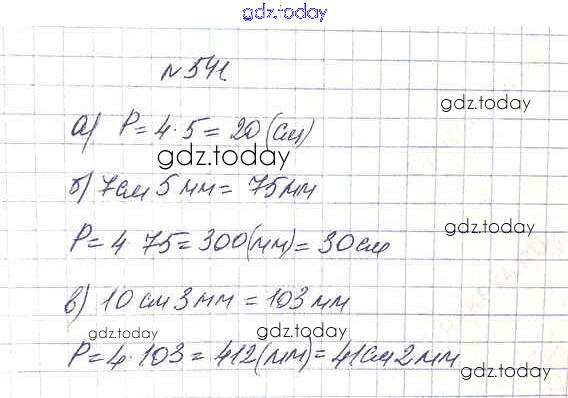 gdz.today
№541
gdz.today
а) P = 4 · 5 = 20 (см)
gdz.today
б) 7см 5 мм = 75мм
gdz.today
P = 4 · 75 = 300 (мм) = 30 см
в) 10 см 3 мм = 103 мм
gdz.today gdz.today
P = 4 · 103 = 412 (мм) = 41 см 2 мм
gdz.today